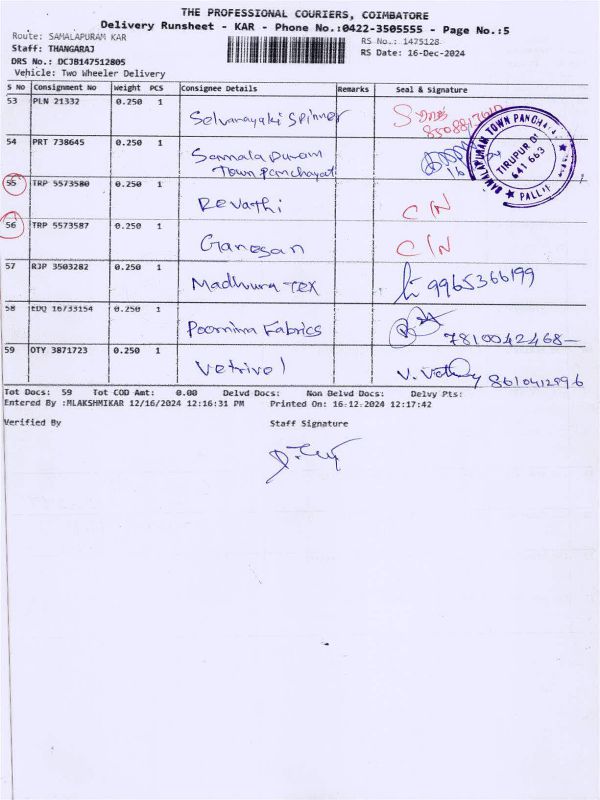 THE PROFESSIONAL COURIERS, COIMBATORE
Delivery Runsheet - KAR - Phone No.:0422-3505555 - Page No.:5
Route: SAMALAPURAM KAR
RS No.: 1475128
Staff: THANGARAJ
RS Date: 16-Dec-2024
DRS No.: DCJB147512805
Vehicle: Two Wheeler Delivery
S No Consignment No Weight PCS Consignee Details Remarks Seal & Signature
53 PLN 21332 0.250 1 Selvanayaki Spinner
54 PRT 738645 0.250 1 Samalapuram
Town panchayat
SAMALAPURAM TOWN PANCHAYAT
TIRUPUR Dt
641 663
PALL
55 TRP 5573580 0.250 1 Revathi C/N
56 TRP 5573587 0.250 1 Ganesan C/N
57 RJP 3503282 0.250 1 Madhura Tex 9965366199
58 EDQ 16733154 0.250 1 Poornima Fabrics 7810042468-
59 OTY 3871723 0.250 1 Vetrivel 8610412896
Tot Docs: 59 Tot COD Amt: 0.00 Delvd Docs: Non Delvd Docs: Delvy Pts:
Entered By :MLAKSHMIKAR 12/16/2024 12:16:31 PM Printed On: 16-12-2024 12:17:42
Verified By Staff Signature